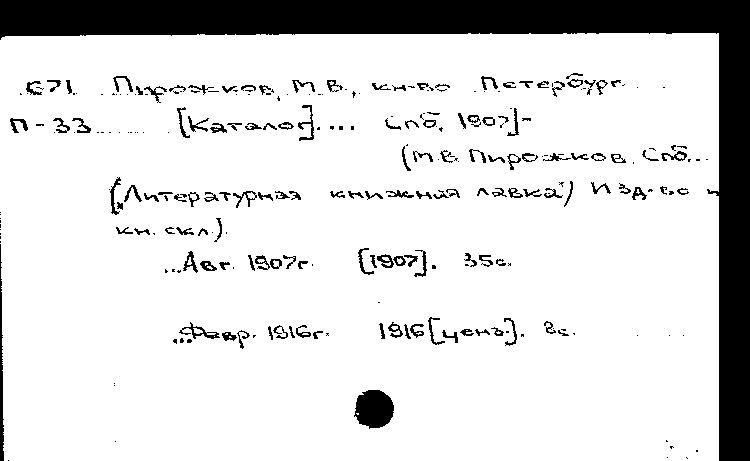 С71 Пирожков, М.В., кн-во Петербург.
П-33 [Каталог].... Спб, 1907]-
(М.В. Пирожков. Спб...
("Литературная книжная лавка") Изд-во и
кн. скл.).
...Авг. 1907г. [1907]. 35с.
...Февр. 1916г. 1916 [ценз.]. 8с.